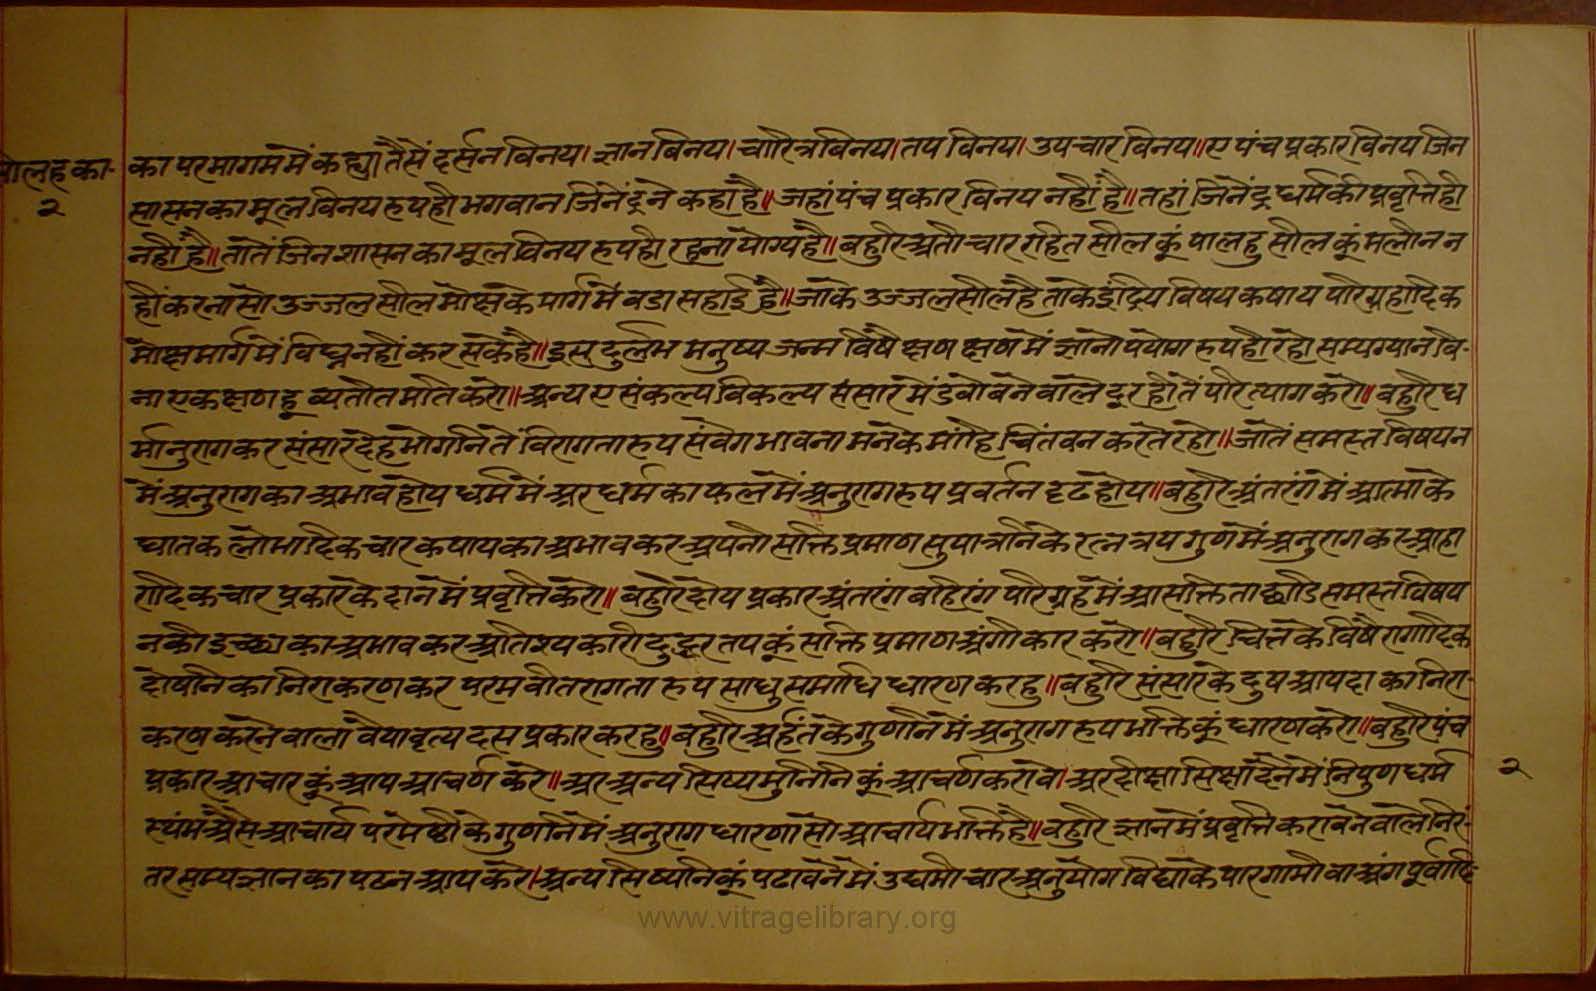 सोलहका-
२
का परमागममें कह्या तैसें दर्सन विनय। ज्ञान विनय। चारित्र विनय। तप विनय। उपचार विनय॥ ए पंच प्रकार विनय जिन
सासनका मूल विनय रुपही भगवान जिनेंद्रने कहां है॥ जहां पंच प्रकार विनय नहीं है॥ तहां जिनेंद्र धर्मकी प्रवृत्तिही
नहीं है॥ तातें जिनशासनका मूल विनय रुपही रहना योग्य है॥ बहुरि अतीचार रहित सील कूं पालहु सील कूं मलीन न
हीं करना सो उज्जल सील मोक्षके मार्गमें बडा सहाई है॥ जाके उज्जल सील है ताके इंद्रिय विषय कषाय परिग्रहादिक
मोक्षमार्गमें विघ्न नहीं कर सके है॥ इस दुर्लभ मनुष्य जन्म विषै क्षण क्षणमें ज्ञानोपयोग रुपही रहो सम्यग्यान वि-
ना एक क्षण हू व्यतीत मति करो॥ अन्य ए संकल्प विकल्प संसारमें डबोवने वाले दूरहीतें परित्याग करो॥ बहुरि ध
र्मानुराग कर संसार देह भोगनितें विरागता रुप संवेग भावना मनके मांहि चिंतवन करते रहो॥ जातें समस्त विषयन
में अनुरागका अभाव होय धर्ममें अर धर्मका फलमें अनुराग रुप प्रवर्तन दृढ होय॥ बहुरि अंतरंगमें आत्माके
घातक लोभादिक चार कषायका अभाव कर अपनी सक्ति प्रमाण सुपात्रनिके रत्नत्रय गुणमें अनुराग कर आहा
रादिक चार प्रकारके दानमें प्रवृत्ति करो॥ बहोरि दोय प्रकार अंतरंग बहिरंग परिग्रहमें आसक्तिता छांडि समस्त विषय
नकी इच्छाका अभाव कर अतिश्यकारी दुद्धर तप कूं सक्ति प्रमाण अंगीकार करो॥ बहुरि चित्तके विषै रागादिक
दोषनिका निराकरण कर परम वीतरागता रुप साधु समाधि धारण करहु॥ बहुरि संसारके दुष आपदा का निरा-
करण करने वाला वैयावृत्य दस प्रकार करहु॥ बहुरि अर्हंतके गुणनिमें अनुराग रुप भक्ति कूं धारण करो॥ बहुरि पंच
प्रकार आचार कूं आप आचर्ण करे॥ अर अन्य सिष्य मुनिनि कूं आचर्ण करावे। अर दीक्षा सिक्षा देनेमें निपुण धर्म
स्थंभ अैसे आचार्य परमेष्ठीके गुणनिमें अनुराग धारणा सो आचार्य भक्ति है॥ बहुरि ज्ञानमें प्रवृत्ति करावने वाले निरं-
तर सम्यज्ञानका पठन आप करे। अन्य सिष्यनि कूं पढावनेमें उद्यमी चार अनुयोग विद्याके पारगामी वा अंग पूर्वादि
२
www.vitragelibrary.org